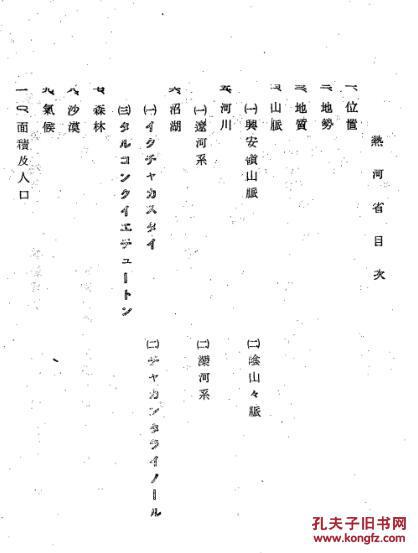 熱河省目次
一、位置
二、地勢
三、地質
四、山脈
㈠興安嶺山脈 ㈡陰山々脈
五、河川
㈠遼河系 ㈡灤河系
六、沼湖
㈠イクチャカスタイ ㈡チャカンタライノール
㈢タルコンタイエデュートン
七、森林
八、沙漠
九、氣候
一〇、面積及人口
孔夫子旧书网